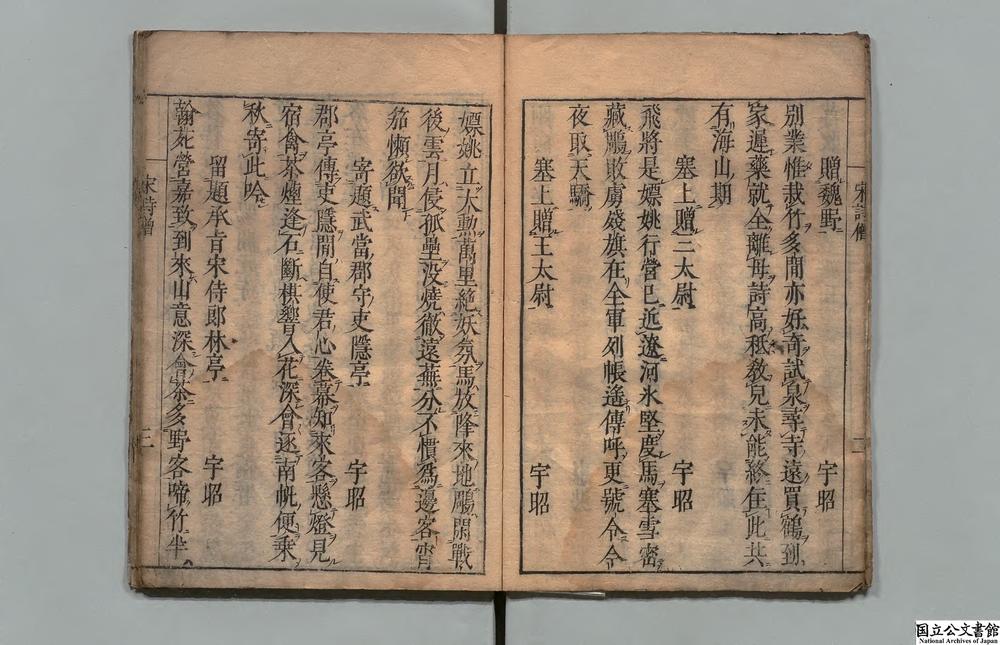 贈魏野 宇昭
別業惟栽竹多閒亦好奇試泉尋寺遠買鶴到
家遲藥就全離母詩高秖敎兒未能終住此共
有海山期
塞上贈王太尉 宇昭
飛將是嫖姚行營已近遼河氷堅度馬塞雪密
藏鵰敗虜殘旗在全軍列帳遙傳呼更號令今
夜取天驕
塞上贈王太尉 宇昭
嫖姚立大勲萬里絶妖氛馬放降來地鵰閒戰
後雲月侵孤壘没燒徹遠蕪分不慣爲邊客宵
笳懶欲聞
寄題武當郡守吏隱亭 宇昭
郡亭傳吏隱閒自使君心卷幕知來客懸燈見
宿禽茶煙逢石斷棋響入花深會逐南帆便乘
秋寄此吟
留題承旨宋侍郎林亭 宇昭
翰苑營嘉致到來山意深會茶多野客啼竹半
宋詩僧
二
三
国立公文書館
National Archives of Japan